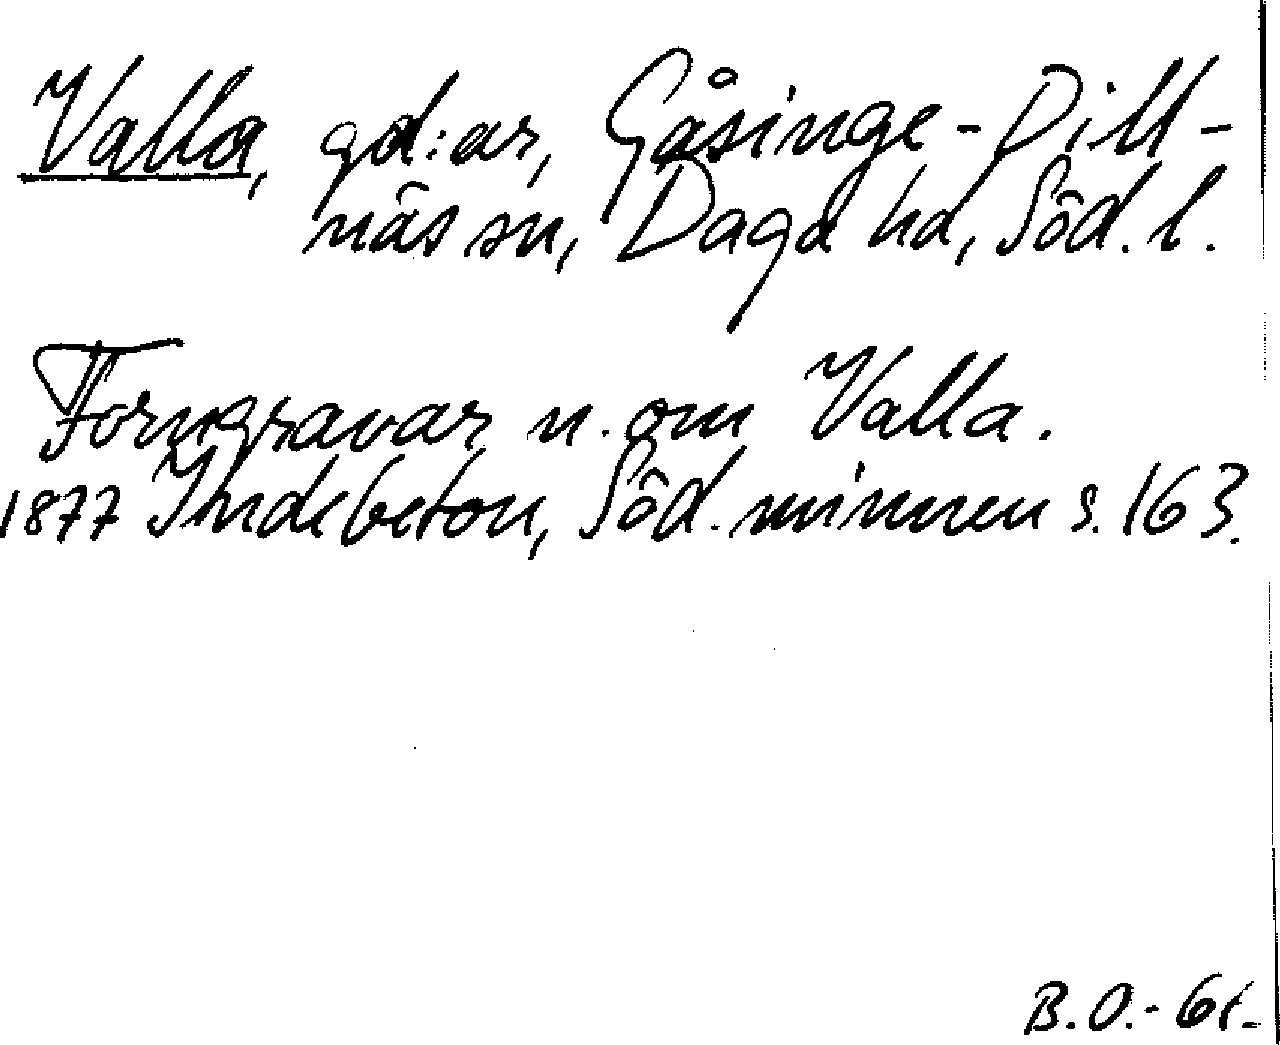 Valla, gd:ar, Gåsinge-Dill-
näs sn, Daga hd, Söd. l.
Forngravar n. om Valla.
1877 Indebetou, Söd. minnen s. 163.
B.O.- 61.